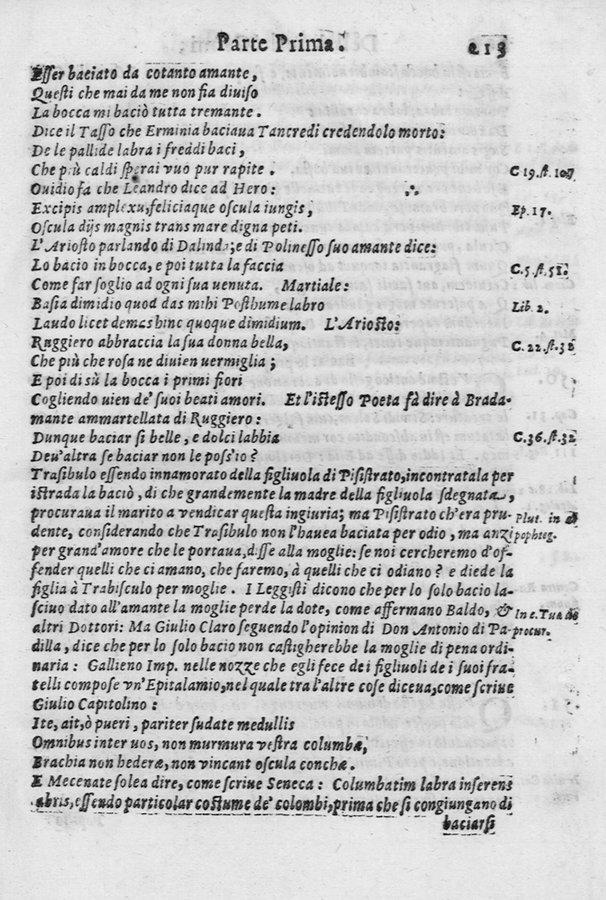 Parte Prima. 213
Esser baciato da cotanto amante,
Questi che mai da me non fia diuiso
La bocca mi baciò tutta tremante.
Dice il Tasso che Erminia baciaua Tancredi credendolo morto:
De le pallide labra i freddi baci,
Che più caldi sperai vuo pur rapire. C 19. st. 107
Ouidio fa che Leandro dice ad Hero:
Excipis amplexu, feliciaque oscula iungis, Ep. 17.
Oscula dijs magnis trans mare digna peti.
L'Ariosto parlando di Dalinda; e di Polinesso suo amante dice:
Lo bacio in bocca, e poi tutta la faccia C. 5. st. 51.
Come far soglio ad ogni sua uenuta. Martiale:
Basia dimidio quod das mihi Posthume labro Lib. 2.
Laudo licet demas hinc quoque dimidium. L'Ariosto:
Ruggiero abbraccia la sua donna bella, C. 22. st. 32
Che più che rosa ne diuien vermiglia;
E poi di sù la bocca i primi fiori
Cogliendo uien de' suoi beati amori. Et l'istesso Poeta fà dire à Brada-
mante ammartellata di Ruggiero:
Dunque baciar si belle, e dolci labbia C. 36. st. 32
Deu'altra se baciar non le poss'io?
Trasibulo essendo innamorato della figliuola di Pisistrato, incontratala per
istrada la baciò, di che grandemente la madre della figliuola sdegnata,
procuraua il marito a vendicar questa ingiuria; ma Pisistrato ch'era pru- Plut. in
dente, considerando che Trasibulo non l'hauea baciata per odio, ma anzi pophteg.
per grand'amore che le portaua, disse alla moglie: se noi cercheremo d'of-
fender quelli che ci amano, che faremo, à quelli che ci odiano? e diede la
figlia à Trabisculo per moglie. I Leggisti dicono che per lo solo bacio la-
sciuo dato all'amante la moglie perde la dote, come affermano Baldo, & In c. Tua de
altri Dottori: Ma Giulio Claro seguendo l'opinion di Don Antonio di Pa- procur.
dilla, dice che per lo solo bacio non castigherebbe la moglie di pena ordi-
naria: Gallieno Imp. nelle nozze che egli fece de i figliuoli de i suoi fra-
telli compose vn'Epitalamio, nel quale tra l'altre cose diceua, come scriue
Giulio Capitolino:
Ite, ait, ò pueri, pariter sudate medullis
Omnibus inter uos, non murmura vestra columbæ,
Brachia non hederæ, non vincant oscula conchæ.
E Mecenate solea dire, come scriue Seneca: Columbatim labra inserens
labris, essendo particolar costume de' colombi, prima che si congiungano di
baciarsi